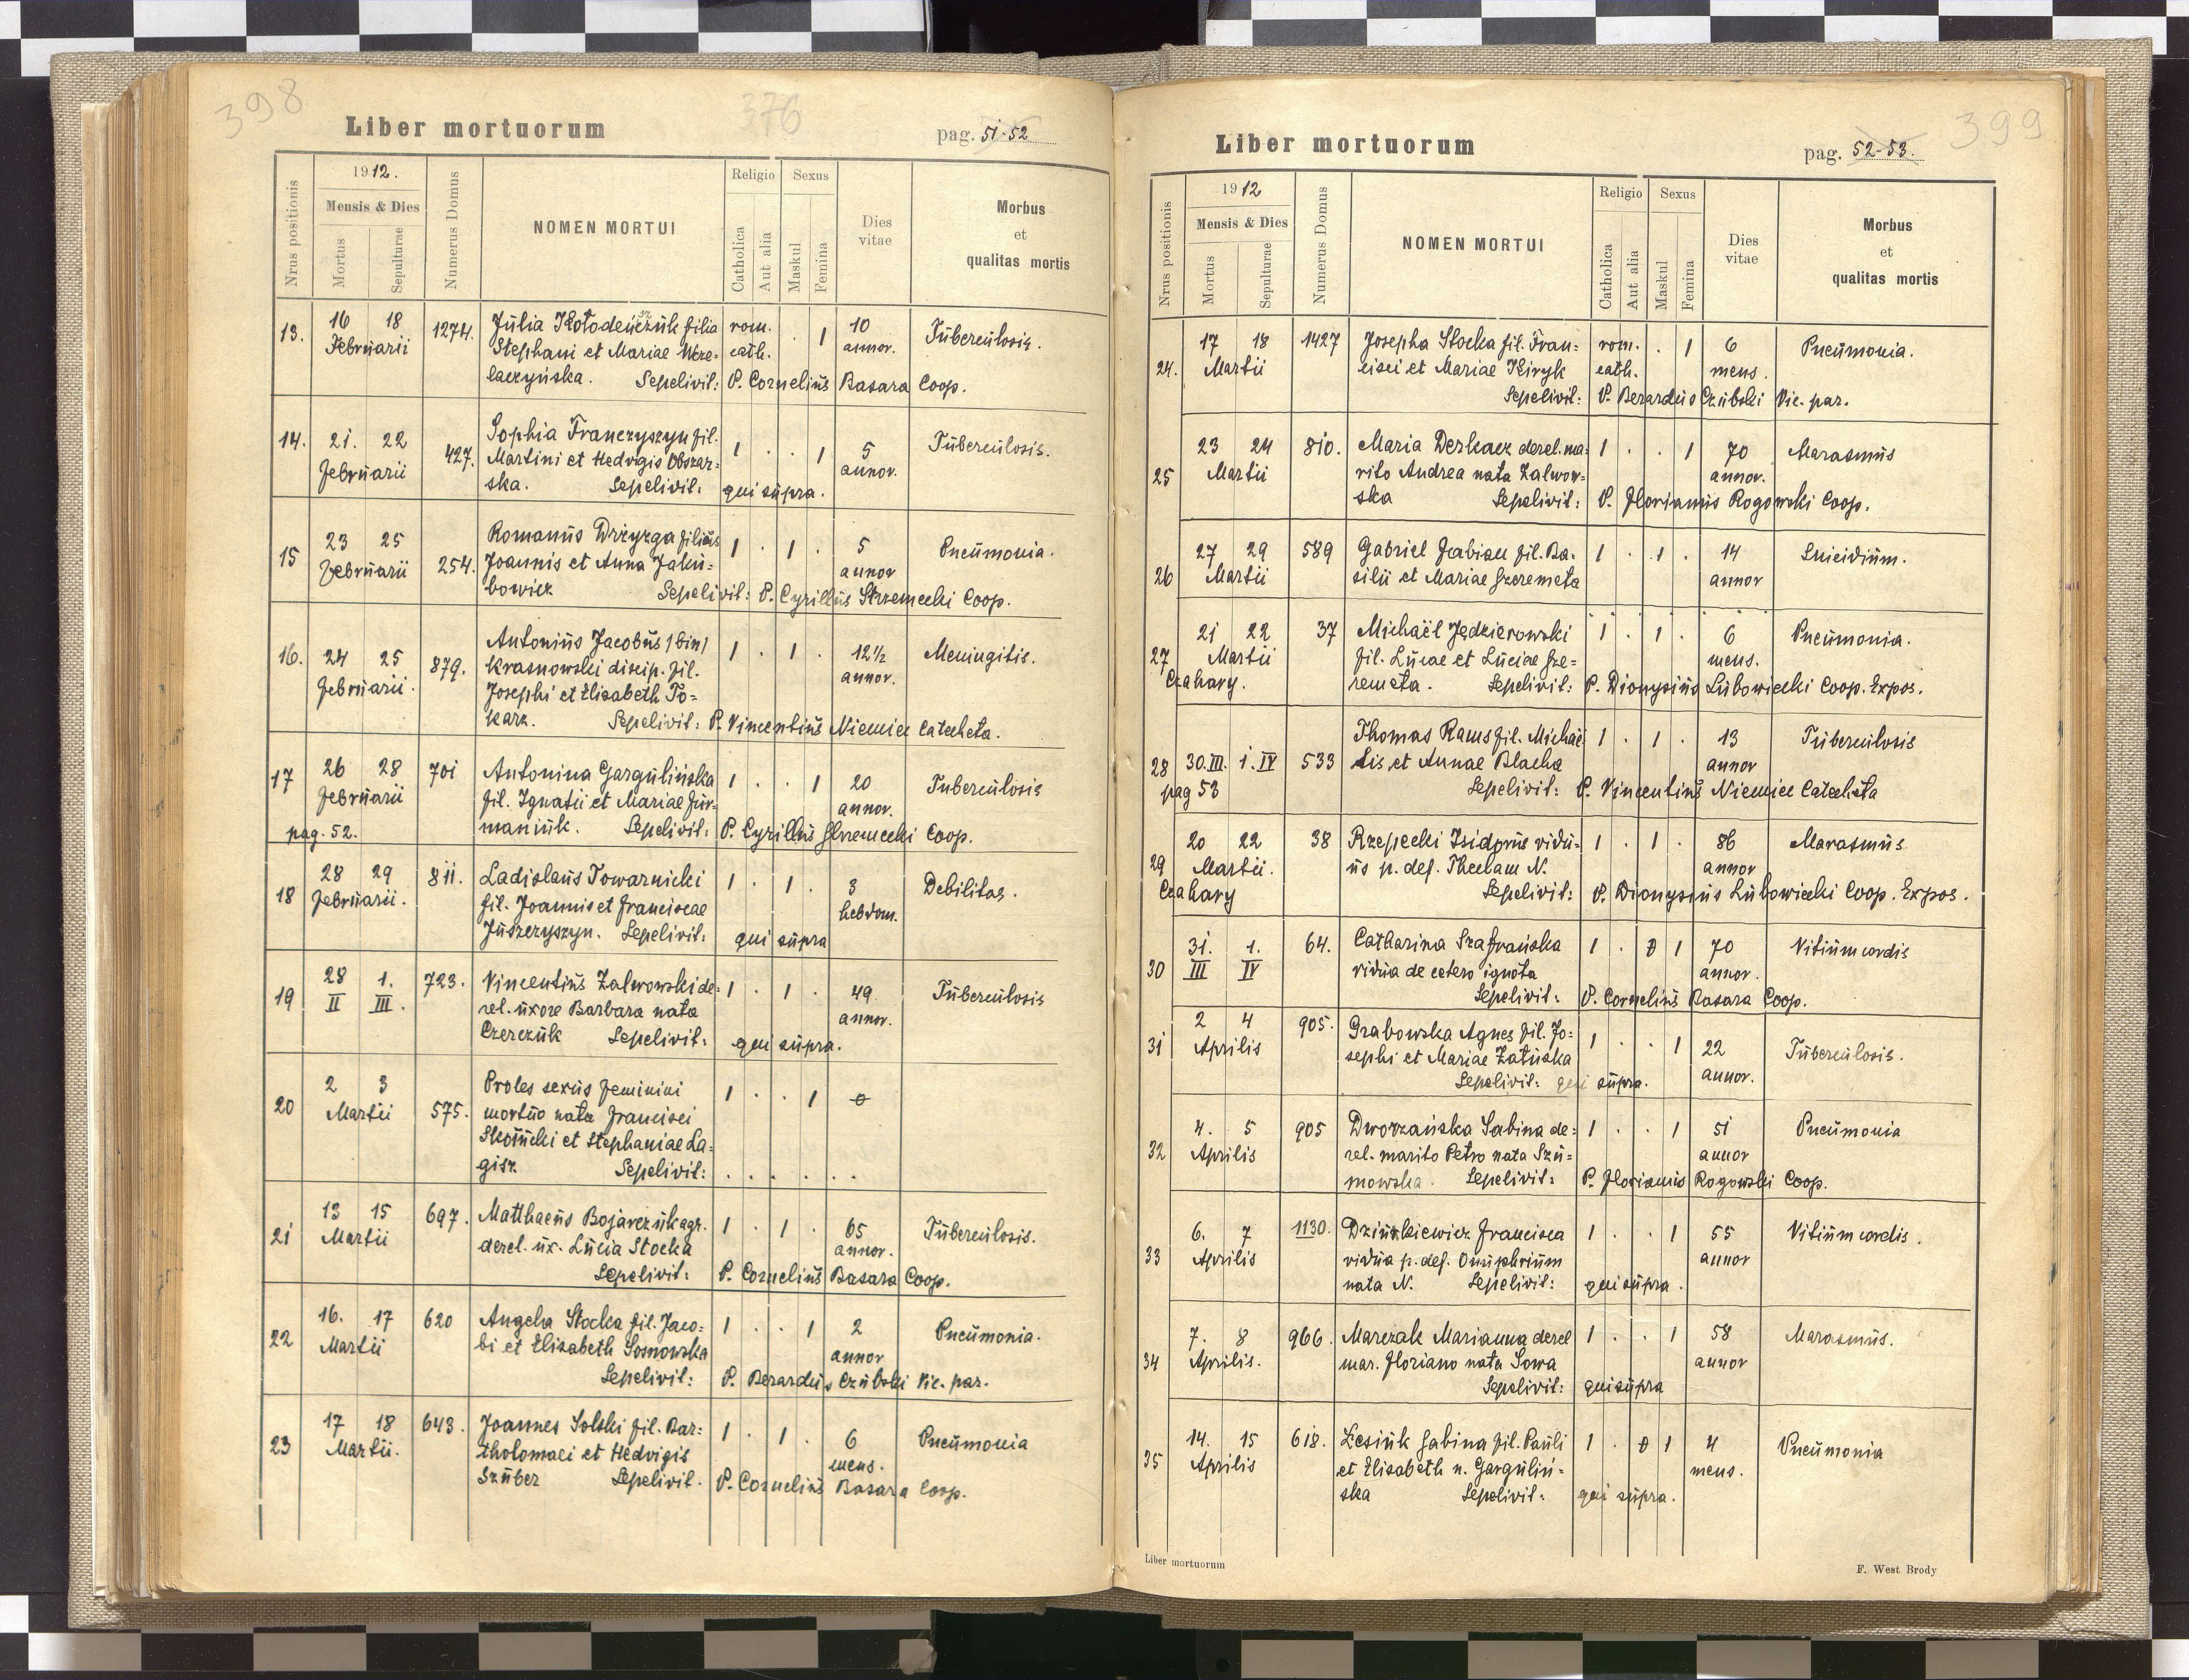 398
Liber mortuorum
376
pag. 51-52
Nrus positionis
1912.
Mensis & Dies
Mortus
Sepulturae
Numerus Domus
NOMEN MORTUI
Religio
Catholica
Aut alia
Sexus
Maskul
Femina
Dies
vitae
Morbus
et
qualitas mortis
13.
16 18
Februarii
1274.
Julia Kołodeńczuk filia
Stephani et Mariae Wcze-
laczyńska. Sepelivit: P. Cornelius Basara Coop.
rom.
cath.
. 1
10
annor.
Tuberculosis.
14.
21. 22
Februarii
427.
Sophia Franczyszyn fil.
Martini et Hedvigis Obszar-
ska. Sepelivit: qui supra.
1 . . 1
5
annor.
Tuberculosis.
15
23 25
Februarii
254.
Romanus Drzyzga filius
Joannis et Anna Jaku=
bowicz Sepelivit: P. Cyrillus Strzemecki Coop.
1 . 1 .
5
annor
Pneumonia.
16.
24 25
Februarii.
879.
Antonius Jacobus /bin/
Krasnowski discip. fil.
Josephi et Elisabeth To=
karz. Sepelivit: P. Vincentius Niemiec Catecheta.
1 . 1 .
12 1/2
annor.
Meningitis.
17
26 28
Februarii
pag. 52.
701
Antonina Gargulińska
fil. Ignatii et Mariae Fur-
maniuk. Sepelivit: P. Cyrillus Strzemecki Coop.
1 . . 1
20
annor.
Tuberculosis
18
28 29
Februarii.
811.
Ladislaus Towarnicki
fil. Joannis et Franciscae
Juszczyszyn. Sepelivit: qui supra
1 . 1 .
3
hebdom.
Debilitas.
19
28 1.
II III.
723.
Vincentius Zalwowski de=
rel. uxore Barbara nata
Czerczuk Sepelivit: qui supra.
1 . 1 .
49
annor.
Tuberculosis
20
2 3
Martii
575.
Proles sexus feminini
mortuo nata Francisci
et Stephaniae La-
gisz. Sepelivit: . . . . . .
1 . . 1
0
21
13 15
Martii
697.
Matthaeus Bojarczuk agr.
derel. ux. Lucia Stocka
Sepelivit: P. Cornelius Basara Coop.
1 . 1 .
65
annor.
Tuberculosis.
22
16. 17
Martii
620
Angela Stocka fil. Jaco=
bi et Elisabeth Sosnowska
Sepelivit: P. Berardus Czubski Vic. par.
1 . . 1
2
annor
Pneumonia.
23
17 18
Martii.
643.
Joannes Solski fil. Bar=
tholomaei et Hedvigis
Szuber Sepelivit. P. Cornelius Basara Coop.
1 . 1 .
6
mens.
Pneumonia
399
Liber mortuorum
pag. 52-53.
Nrus positionis
1912
Mensis & Dies
Mortus
Sepulturae
Numerus Domus
NOMEN MORTUI
Religio
Catholica
Aut alia
Sexus
Maskul
Femina
Dies
vitae
Morbus
et
qualitas mortis
24.
17 18
Martii
1427
Josepha Stocka fil. Fran=
cisci et Mariae Kiryk
Sepelivit: P. Berardus Czubski Vic. par.
rom.
cath.
. 1
6
mens.
Pneumonia.
25
23 24
Martii
810.
Maria Derkacz derel. ma-
rito Andrea nata Zalwow=
ska Sepelivit: P. Florianus Rogowski Coop.
1 . . 1
70
annor.
Marasmus
26
27 29
Martii
589
Gabriel Fabian fil. Ba-
silii et Mariae Szeremeta
1 . 1 .
14
annor
Suicidium.
27
21 22
Martii
Czahary.
37
Michaël Jędzierowski
fil. Lucae et Luciae Sze=
remeta. Sepelivit: P. Dionysius Lubowiecki Coop. Expos.
1 . 1 .
6
mens.
Pneumonia.
28
30.III. 1.IV
pag 53
533
Thomas Raus fil. Michaë-
lis et Annae Blacha
Sepelivit: P. Vincentius Niemiec Catecheta
1 . 1 .
13
annor
Tuberculosis
29
20 22
Martii.
Czahary
38
Rzepecki Isidorus vidu-
us p. def. Theclam N.
Sepelivit: P. Dionysius Lubowiecki Coop. Expos.
1 . 1 .
86
annor
Marasmus
30
31. 1.
III IV
64.
Catharina Szafrańska
vidua de cetero ignota
Sepelivit: P. Cornelius Basara Coop.
1 . 0 1
70
annor.
Vitium cordis
31
2 4
Aprilis
905.
Grabowska Agnes fil. Jo=
sephi et Mariae Załuska
Sepelivit: qui supra.
1 . . 1
22
annor.
Tuberculosis.
32
4. 5
Aprilis
905
Dworzańska Sabina de=
rel. marito Petro nata Szu=
mowska. Sepelivit: P. Florianus Rogowski Coop.
1 . . 1
51
annor
Pneumonia
33
6. 7
Aprilis
1130.
Dziurkiewicz Francisca
vidua p. def. Onuphrium
nata N. Sepelivit: qui supra.
1 . . 1
55
annor
Vitium cordis.
34
7. 8
Aprilis.
966.
Marczak Marianna derel
mar. Floriano nata Sowa
Sepelivit: qui supra
1 . . 1
58
annor
Marasmus.
35
14. 15
Aprilis
618.
Lesiuk Sabina fil. Pauli
et Elisabeth n. Garguliń-
ska Sepelivit: qui supra.
1 . 0 1
4
mens.
Pneumonia
Liber mortuorum
F. West Brody